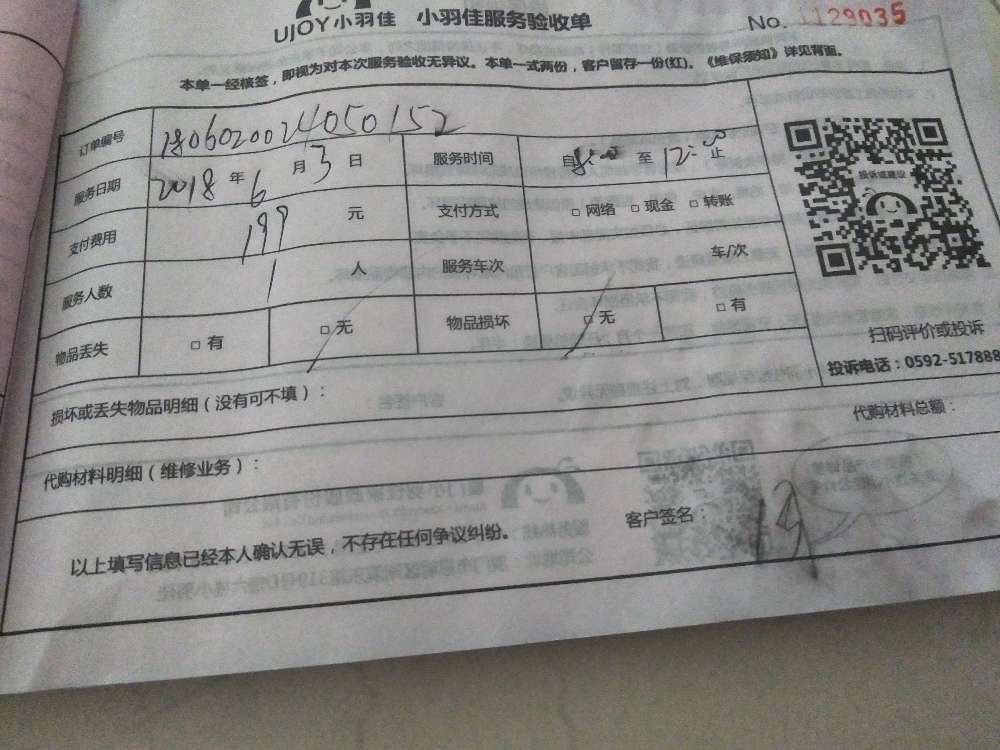 UJOY小羽佳 小羽佳服务验收单 No. 1129035
本单一经核签，即视为对本次服务验收无异议。本单一式两份，客户留存一份(红)。《维保须知》详见背面。
订单编号 1806020024050152
服务日期 2018 年 6 月 3 日 服务时间 自 8:00 至 12:00 止
支付费用 199 元 支付方式 □ 网络 □ 现金 □ 转账
服务人数 1 人 服务车次 车/次
物品丢失 □ 有 □ 无 物品损坏 □ 无 □ 有
投诉或建议
扫码评价或投诉
投诉电话：0592-517888
损坏或丢失物品明细（没有可不填）：
代购材料明细（维修业务）： 代购材料总额：
以上填写信息已经本人确认无误，不存在任何争议纠纷。 客户签名：